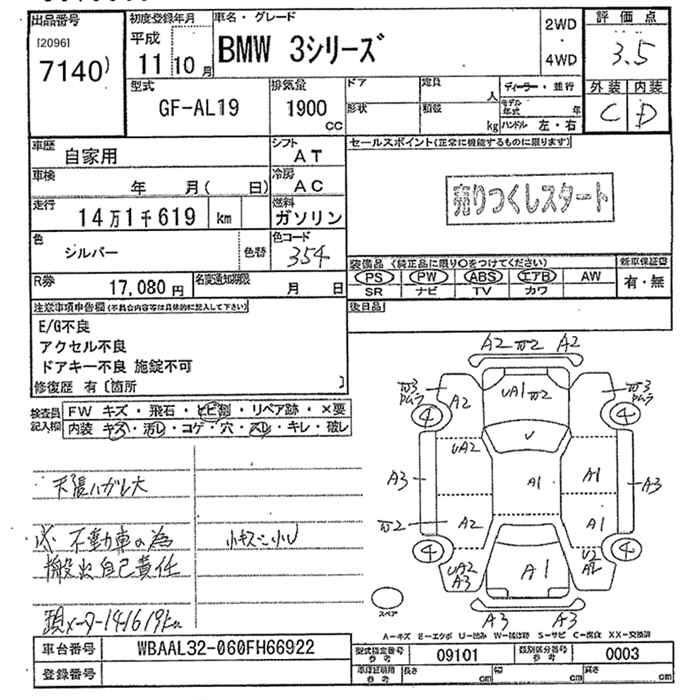 出品番号
[2096]
7140)
初度登録年月
平成
11 10月
車名・グレード
BMW 3シリーズ
2WD
4WD
評価点
3.5
外装 内装
C D
型式
GF-AL19
排気量
1900
CC
ドア
形状
定員
人
積載
kg
ディーラー・並行
モデル年式 年
ハンドル 左・右
車歴
自家用
シフト
AT
車検
年 月( 日)
冷房
AC
走行
14万1千619 km
燃料
ガソリン
色
シルバー
色替
色コード
354
R券
17,080円
名変通知期限
月 日
セールスポイント(正常に機能するものに限ります)
売りつくしスタート
装備品 (純正品に限り○をつけてください)
PS PW ABS エアB AW
SR ナビ TV カワ
新車保証書
有・無
後日品
注意事項申告欄(不具合内容等は具体的に記入して下さい)
E/G不良
アクセル不良
ドアキー不良 施錠不可
修復歴 有〔箇所 〕
検査員記入欄
FW キズ・飛石・ヒビ割・リペア跡・×要
内装 キズ・汚レ・コゲ・穴・スレ・キレ・破レ
天張ハガレ大
不動車の為
小キズ小U
搬出自己責任
メーター141619km
A2 W2 A2
W3 ムラ
A2
UA1 W2
W3 ムラ
4
4
U
UA2
A3
A1
A1
A3
W2
A2
A1
4
4
UA2
A3
A1
U2
A2
A3 A3
スペア
A―キズ E―エクボ U―凹み W―波は跡 S―サビ C―腐食 XX―交換済
車台番号
WBAAL32-060FH66922
登録番号
型式指定番号
参考
09101
類別区分番号
参考
0003
車庫証明用
参考
長さ cm
幅 cm
高さ cm